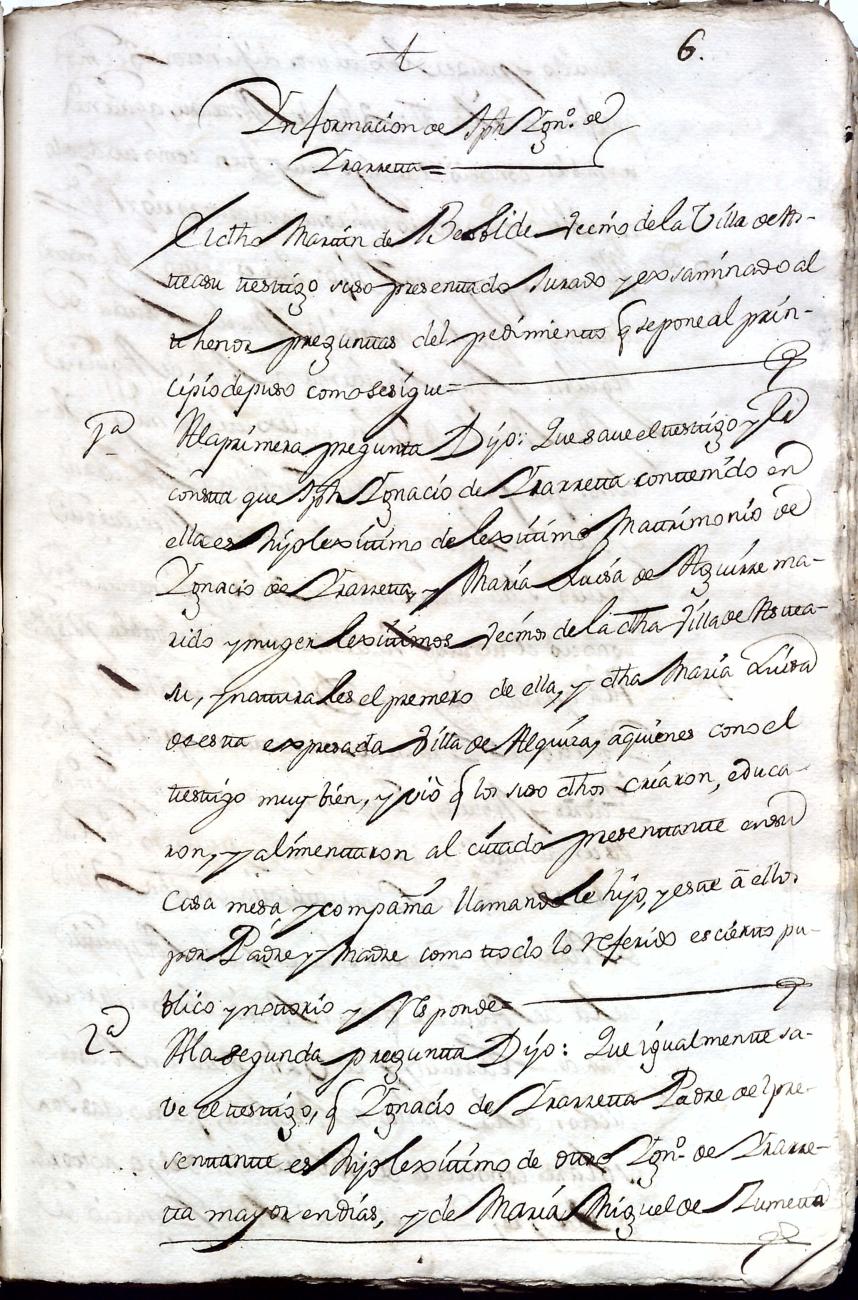 6.
Informacion de Jph Ygn.º de
Yrarreta =
El dho Martin de Beobide vecino de la Villa de As-
teasu testigo suso presentado Jurado y exsaminado al
thenor preguntas del pedimiento q se pone al prin-
cipio depuso como se sigue =
1ª
A la primera pregunta Dijo: Que save el testigo y le
consta que Jph Ygnacio de Yrarreta contenido en
ella es hijo lexitimo de lexitimo Matrimonio de
Ygnacio de Yrarreta, y María Luisa de Aguirre ma-
rido y muger lexitimos vecinos de la dha Villa de Astea-
su, y naturales el premero de ella, y dha María Luisa
de esta expresada Villa de Alquiza, aquienes conoce el
testigo muy bien, y vió q los suso dhos criaron, educa-
ron, y alimentaron al citado presentante en su
Casa mesa y compañia llamandole hijo, y este á ellos
por Padre y Madre como todo lo referido es cierto pu-
blico y notorio y Responde =
2ª
A la segunda pregunta Dijo: Que igualmente sa-
ve el testigo, q Ygnacio de Yrarreta Padre del pre-
sentante es hijo lexitimo de otro Ygn.º de Yrarre-
ta mayor en dias, y de María Miguel de Zumeta